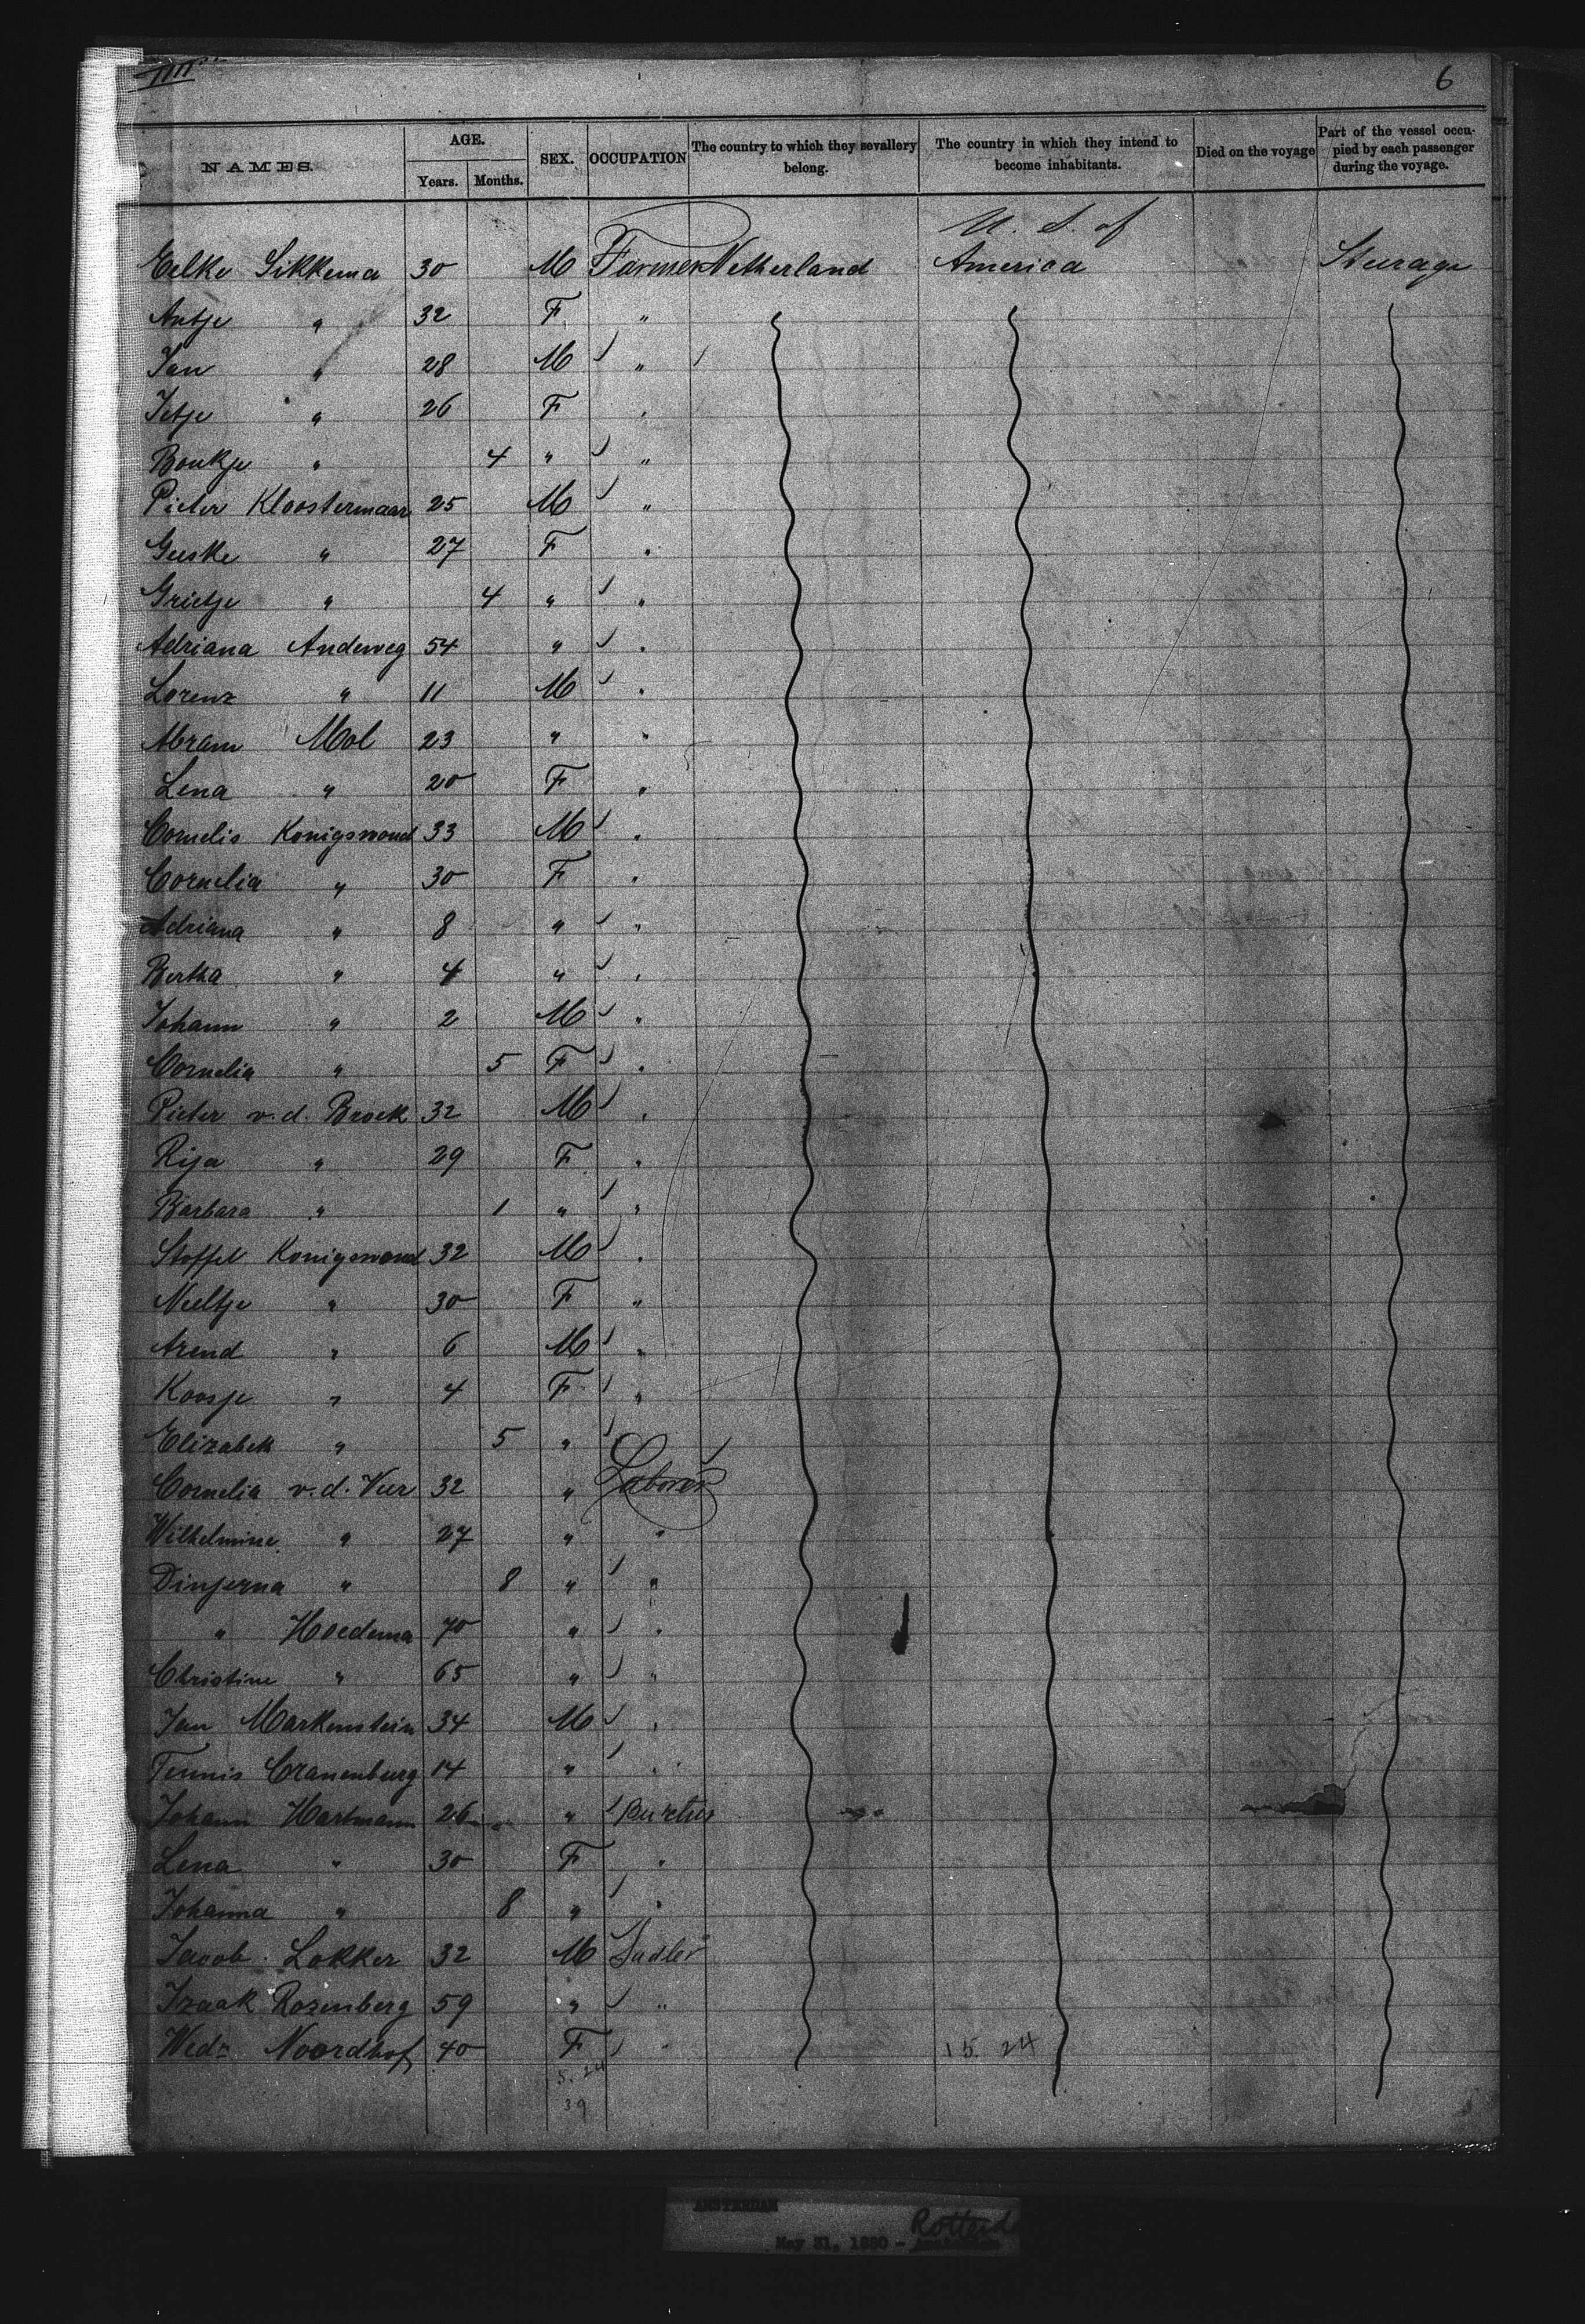 6
NAMES. AGE. SEX. OCCUPATION The country to which they sevallery belong. The country in which they intend to become inhabitants. Died on the voyage Part of the vessel occupied by each passenger during the voyage.
Years. Months.
U. S. of
Eelke Sikkema 30 M Farmer Netherland America Steerage
Antje " 32 F "
Jan " 28 M "
Jetje " 26 F "
Boukje " 4 " "
Pieter Kloostermaar 25 M "
Geeske " 27 F "
Grietje " 4 " "
Adriana Andeweg 54 " "
Lorenz " 11 M "
Abram Mol 23 " "
Lena " 20 F "
Cornelis Konigswoud 33 M "
Cornelia " 30 F "
Adriana " 8 " "
Bertha " 4 " "
Johann " 2 M "
Cornelia " 5 F "
Pieter v.d. Broek 32 M "
Rija " 29 F "
Barbara " 1 " "
Stoffel Konigswoud 32 M "
Neeltje " 30 F "
Arend " 6 M "
Koosje " 4 F "
Elizabeth " 5 " "
Cornelia v.d. Veer 32 " Laborer
Wilhelmine " 27 " "
Dinjerna " 8 " "
" Hoedema 70 " "
Christine " 65 " "
Jan Markenstein 34 M "
Teunis Cranenburg 14 " "
Johann Hartmann 26 "
Lena " 30 F "
Johanna " 8 " "
Jacob Lokker 32 M Sadler
Izaak Rozenberg 59 " "
Wedr Noordhof 40 F " 15. 24
5. 24
39
AMSTERDAM
Rotterd
May 31, 1880 -